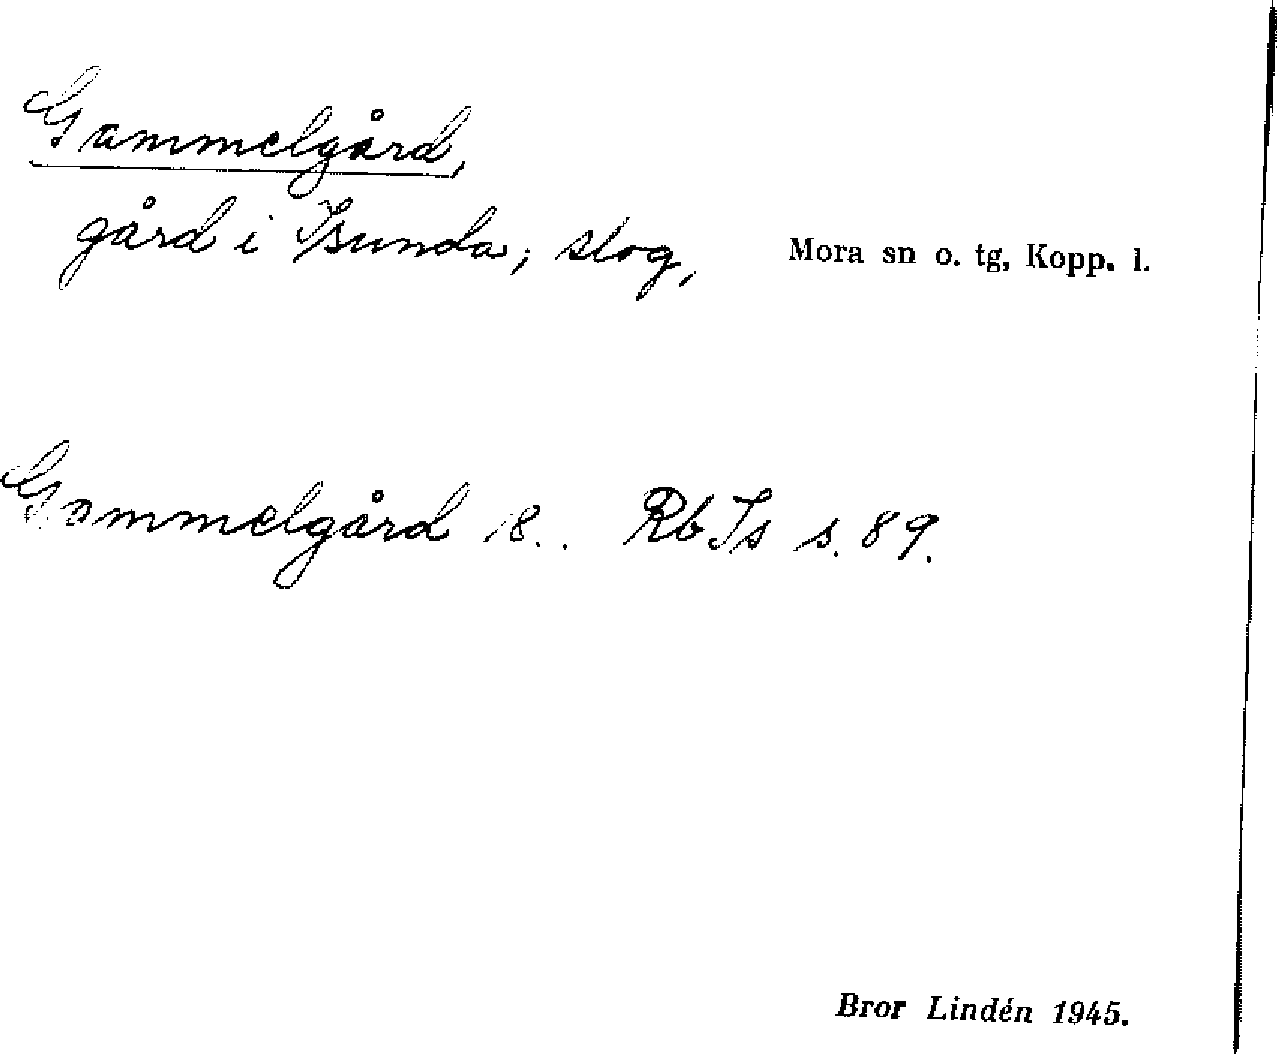 Gammelgård,
gård i Isunda; slog, Mora sn o. tg, Kopp. l.
Gammelgård 18.. Rb Is s. 89.
Bror Lindén 1945.